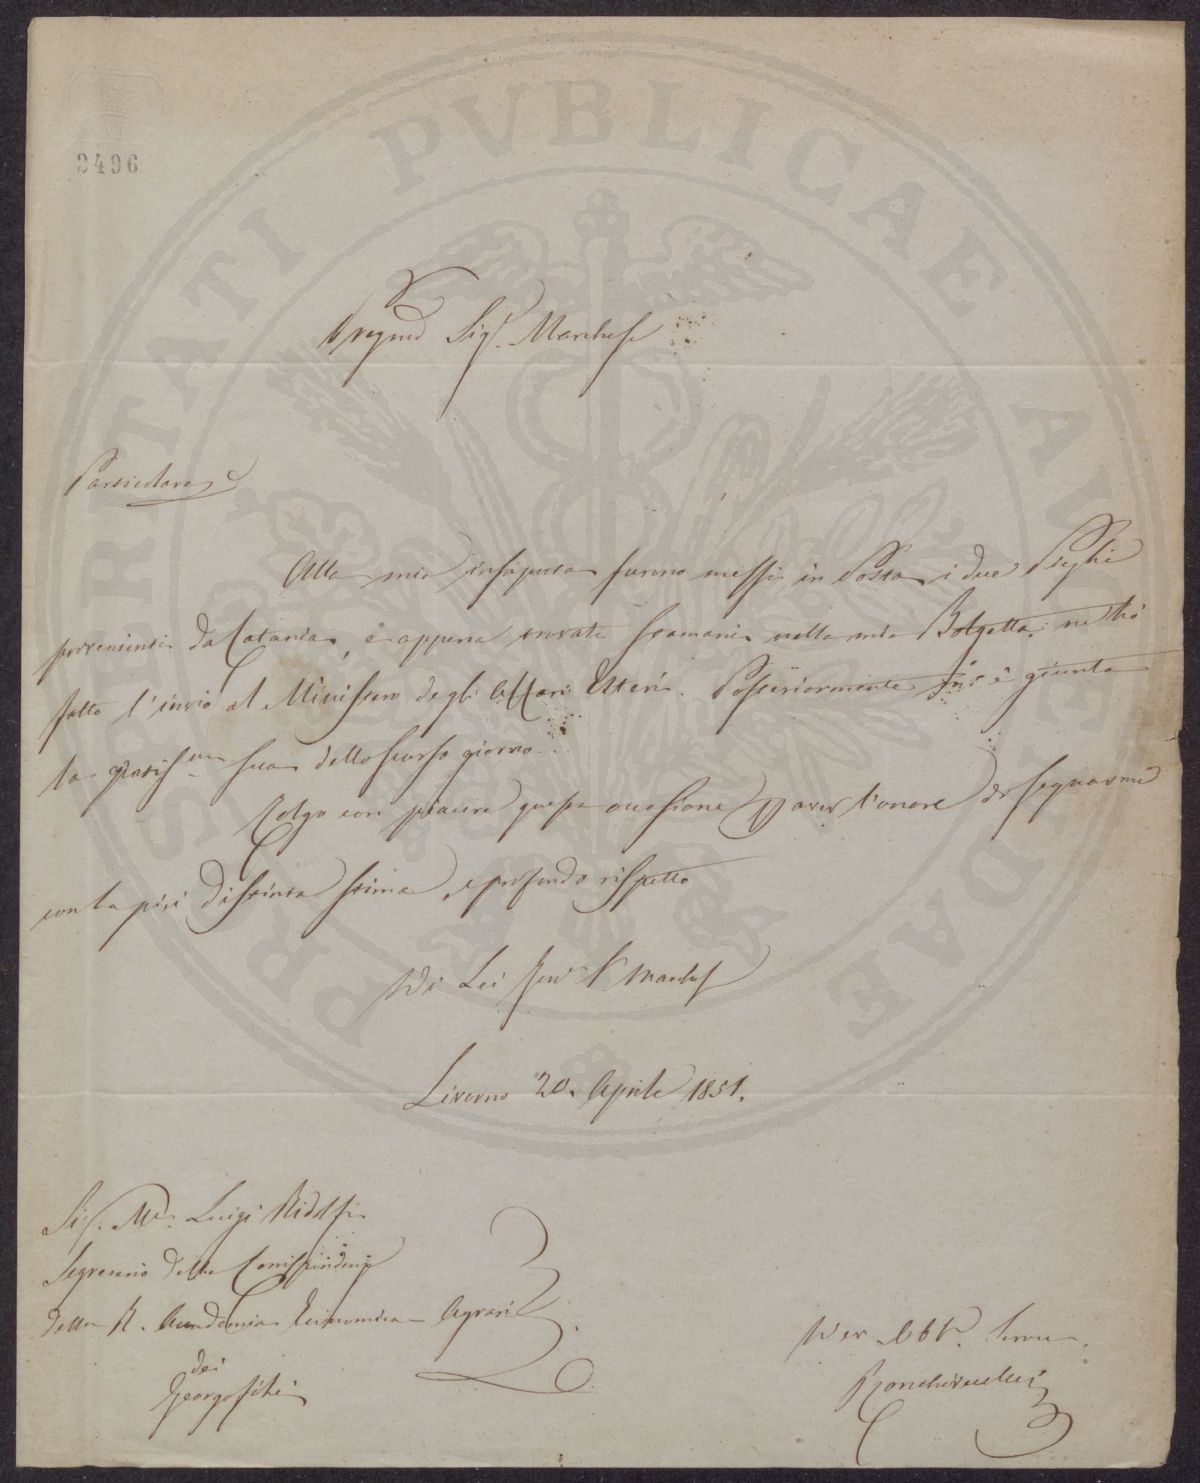 2496
PROSPERITATI PVBLICAE AVGENDAE
Sig. Marchese
Particolare
Alla mia insaputa furono messi in Posta i due Pieghi
provenienti da Catania, e appena trovati stamani nella mia Bolgetta ne ho
fatto l'invio al Ministero degli Affari Esteri. Posteriormente mi è giunta
la gratis.ma sua dello scorso giorno.
Colgo con piacere questa occasione aver l'onore di segnarmi
con la più distinta stima, e profondo rispetto
Di Lei Marchese
Livorno 20. Aprile 1851.
Sig. Mse. Luigi Ridolfi
Segretario delle Corrispondenze
della R. Accademia Economica Agraria
dei
Georgofili
Dev. Obb. Servo